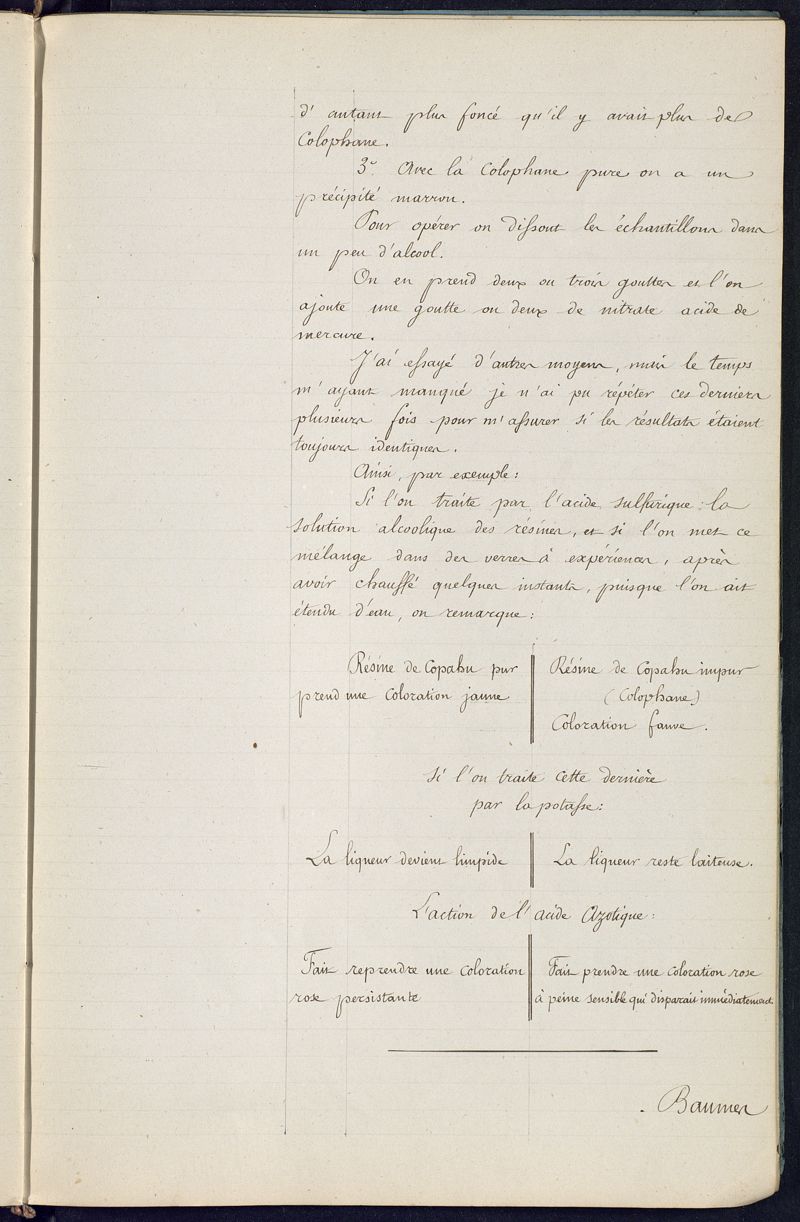 d'autant plus foncé qu'il y avait plus de
Colophane.
3º. Avec la Colophane pure on a un
précipité marron.
Pour opérer on dissout les échantillons dans
un peu d'alcool.
On en prend deux ou trois gouttes et l'on
ajoute une goutte ou deux de nitrate acide de
mercure.
J'ai essayé d'autres moyens, mais le temps
m'ayant manqué je n'ai pu répéter ces derniers
plusieurs fois pour m'assurer si les résultats étaient
toujours identiques.
Ainsi, par exemple:
Si l'on traite par l'acide sulfurique la
solution alcoolique des résines, et si l'on met ce
mélange dans des verres à expériences, après
avoir chauffé quelques instants, puisque l'on ait
étendu d'eau, on remarque:
Résine de Copahu pur
prend une coloration jaune
Résine de Copahu impur
(Colophane)
Coloration fauve.
Si l'on traite cette dernière
par la potasse:
La liqueur devient limpide
La liqueur reste laiteuse.
L'action de l'acide Azotique:
Fait reprendre une coloration
rose persistante
Fait prendre une coloration rose
à peine sensible qui disparait immédiatement.
. Baumes